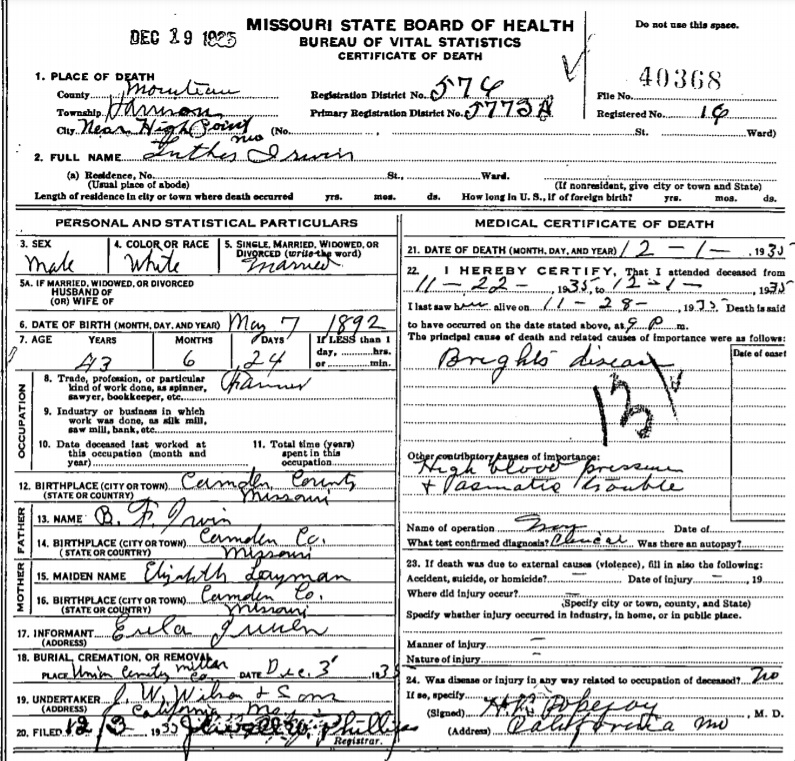 MISSOURI STATE BOARD OF HEALTH
BUREAU OF VITAL STATISTICS
CERTIFICATE OF DEATH
Do not use this space.
DEC 19 1935
40368
1. PLACE OF DEATH
County Moniteau Registration District No. 576 File No.
Township Primary Registration District No. 5773A Registered No. 16
City Near High Point Mo (No. , St. Ward)
2. FULL NAME Luther Irwin
(a) Residence, No. St., Ward.
(Usual place of abode) (If nonresident, give city or town and State)
Length of residence in city or town where death occurred yrs. mos. ds. How long in U. S., if of foreign birth? yrs. mos. ds.
PERSONAL AND STATISTICAL PARTICULARS
3. SEX 4. COLOR OR RACE 5. SINGLE, MARRIED, WIDOWED, OR
DIVORCED (write the word)
Male White Married
5A. IF MARRIED, WIDOWED, OR DIVORCED
HUSBAND OF
(OR) WIFE OF
6. DATE OF BIRTH (MONTH, DAY, AND YEAR) May 7 1892
7. AGE YEARS MONTHS DAYS If LESS than 1
day, hrs.
or min.
43 6 24
OCCUPATION
8. Trade, profession, or particular
kind of work done, as spinner,
sawyer, bookkeeper, etc. Farmer
9. Industry or business in which
work was done, as silk mill,
saw mill, bank, etc.
10. Date deceased last worked at
this occupation (month and
year)
11. Total time (years)
spent in this
occupation
12. BIRTHPLACE (CITY OR TOWN) Camden County
(STATE OR COUNTRY) Missouri
FATHER
13. NAME B. F. Irwin
14. BIRTHPLACE (CITY OR TOWN) Camden Co.
(STATE OR COUNTRY) Missouri
MOTHER
15. MAIDEN NAME Elizabeth Layman
16. BIRTHPLACE (CITY OR TOWN) Camden Co.
(STATE OR COUNTRY) Missouri
17. INFORMANT Eula
(ADDRESS)
18. BURIAL, CREMATION, OR REMOVAL
PLACE Union Cemetery Miller Co DATE Dec. 3 1935
19. UNDERTAKER J. W. Wilson & Sons
(ADDRESS) California Mo
20. FILED 12/3 1935 Phillips
Registrar.
MEDICAL CERTIFICATE OF DEATH
21. DATE OF DEATH (MONTH, DAY, AND YEAR) 12 - 1 - 1935
22. I HEREBY CERTIFY, That I attended deceased from
11 - 22 - 1935, to 12 - 1 - 1935
I last saw him alive on 11 - 28 - 1935 Death is said
to have occurred on the date stated above, at 9 P m.
The principal cause of death and related causes of importance were as follows:
Date of onset
Brights disease
131
Other contributory causes of importance:
High blood pressure
& trouble
Name of operation Date of
What test confirmed diagnosis? Clinical Was there an autopsy?
23. If death was due to external causes (violence), fill in also the following:
Accident, suicide, or homicide? - Date of injury - , 19
Where did injury occur? -
(Specify city or town, county, and State)
Specify whether injury occurred in industry, in home, or in public place.
Manner of injury -
Nature of injury -
24. Was disease or injury in any way related to occupation of deceased? No
If so, specify
(Signed) , M. D.
(Address) California Mo